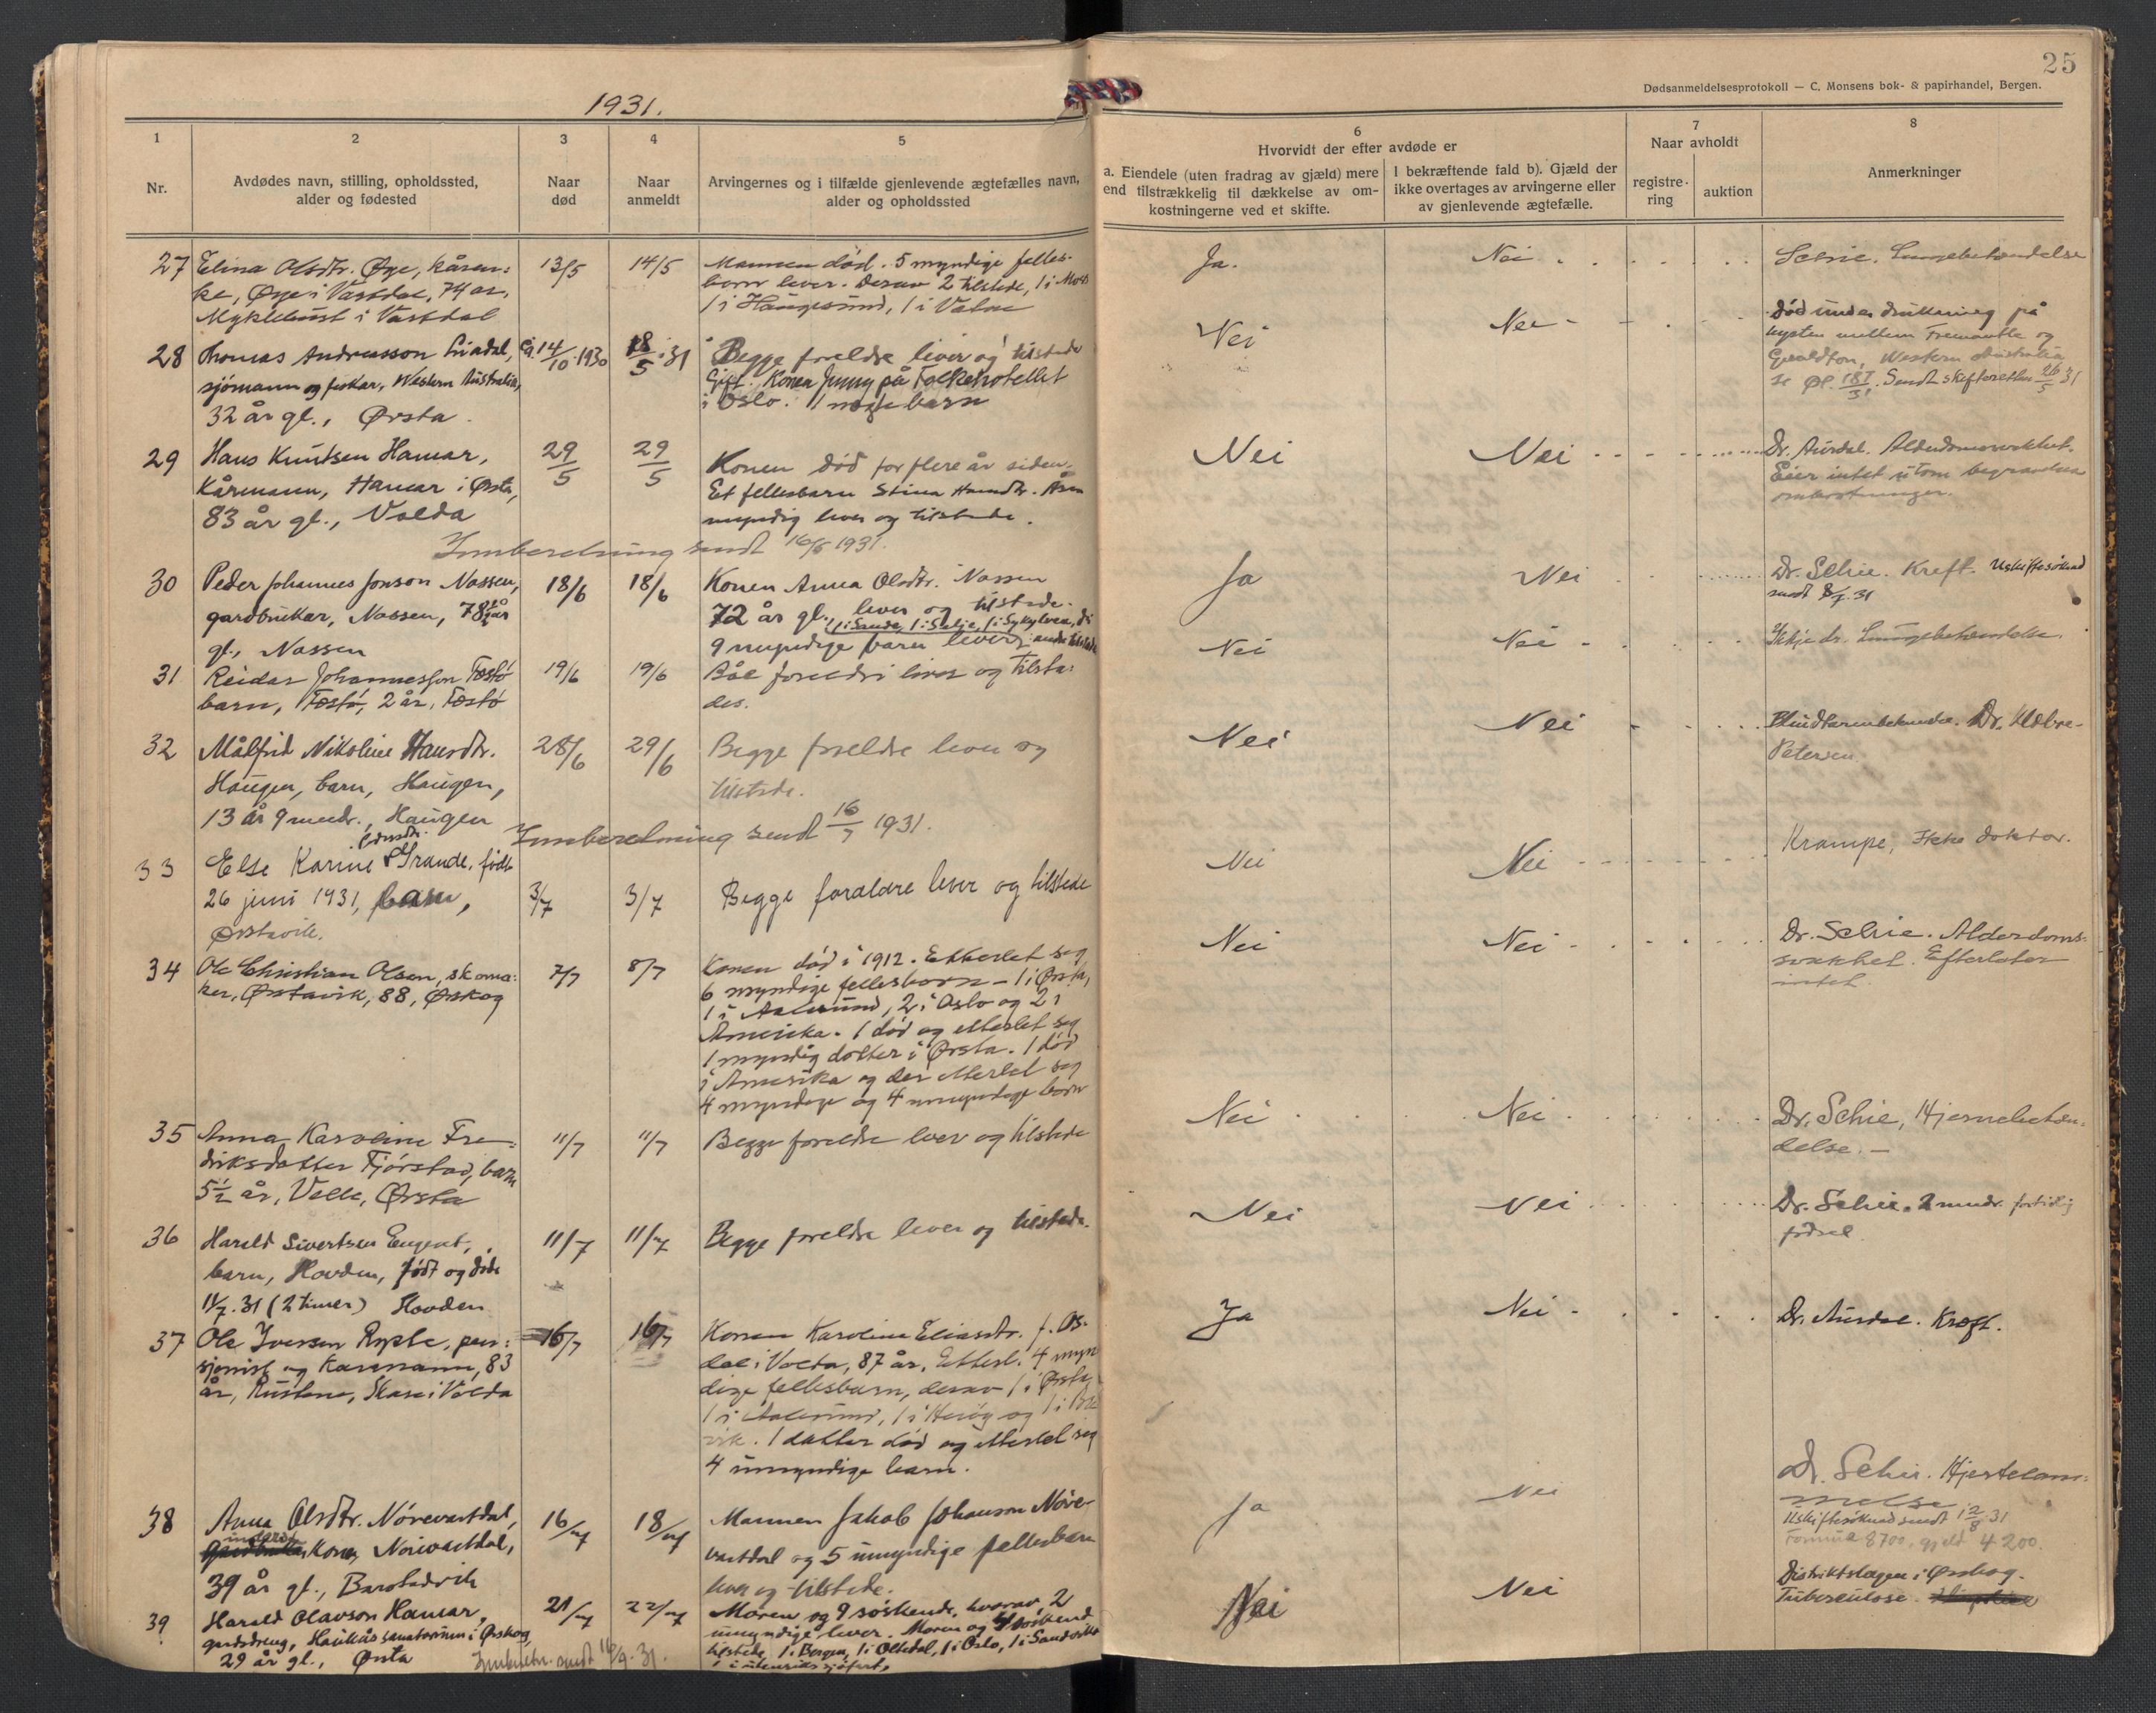 25
Dødsanmeldelsesprotokoll — C. Monsens bok- & papirhandel, Bergen.
1931.
1 2 3 4 5 6 7 8
Nr.
Avdødes navn, stilling, opholdssted,
alder og fødested
Naar
død
Naar
anmeldt
Arvingernes og i tilfælde gjenlevende ægtefælles navn,
alder og opholdssted
Hvorvidt der efter avdøde er
a. Eiendele (uten fradrag av gjæld) mere
end tilstrækkelig til dækkelse av om-
kostningerne ved et skifte.
I bekræftende fald b). Gjæld der
ikke overtages av arvingerne eller
av gjenlevende ægtefælle.
Naar avholdt
registre-
ring
auktion
Anmerkninger
27 Elina Olsdtr. Øye, kåren:
ke, Øye i Vastdal, 74 år,
Myklebust i Vastdal
13/5
14/5
Mannen død. 5 myndige felles-
born lever. Derav 2 tilstede, 1 i
1 i Haugesund, 1 i
Ja.
Nei
Schie. Lungebetendelse
28 Thomas Andreasson Liadal,
sjømann og fiskar, Western Australia,
32 år gl., Ørsta.
Ca. 14/10 1930
18/5 31
Begge foreldre lever og tilstede
Gift. Konen Jenny på Folkehotellet
i Oslo. 1 barn
Nei
Nei
død under drukning på
kysten mellem Fremantle og
Geraldton, Western Australia
Sendt skifteretten 26/5 31
29 Hans Knutsen Hamar,
Kårmann, Hamar i Ørsta,
83 år gl., Volda
29/5
29/5
Konen død for flere år siden.
Et fellesbarn Stina
myndig lever og tilstede.
Nei
Nei
Dr. Aurdal. Alderdomssvakhet.
Eier intet utom begravelses
omkostninger.
Innberetning sendt 16/6 1931.
30 Peder Johannes Jonson Nossen,
gardbrukar, Nossen, 78½ år
gl., Nossen
18/6
18/6
Konen Anna Olsdtr. Nossen
72 år gl., lever og tilstede.
1 i Sande, 1 i Selje, 1 i Sykylven, di
9 myndige barn lever, andre tilstede
Ja
Nei
Dr. Schie. Kreft. Uskiftesøknad
sendt 8/7.31
31 Reidar Johannesson Fostø
barn, Fostø, 2 år, Fostø
19/6
19/6
Båe foreldri liver og tilsta:
des.
Nei
Nei
Ikkje dr. Lungebetendelse
32 Målfrid Nikoline Hansdtr.
Haugen, barn, Haugen,
13 år 9 mndr., Haugen
28/6
29/6
Begge foreldre lever og
tilstede.
Nei
Nei
Blindtarmbetendelse. Dr.
Petersen
Innberetning sendt 16/7 1931.
33 Else Karine Grande, født
26 juni 1931, barn,
Ørstavik.
3/7
3/7
Begge foreldre lever og tilstede
Nei
Nei
Krampe, Ikke doktor.
34 Ole Christian Olsen, skoma:
ker, Ørstavik, 88, Ørskog
7/7
8/7
Konen død i 1912. Etterlet seg
6 myndige fellesborn — 1 i Ørsta,
1 i Aalesund, 2 i Oslo og 2 i
Amerika. 1 død og etterlet seg
1 myndig dotter i Ørsta. 1 død
i Amerika og der etterlet seg
4 myndige og 4 umyndige born
Nei
Nei
Dr. Schie. Alderdoms:
svakhet. Efterlater
intet.
35 Anna Karoline Fre:
driksdatter Fjørstad, barn
5½ år, Velle, Ørsta
11/7
11/7
Begge foreldre lever og tilstede
Nei
Nei
Dr. Schie, Hjernebeten:
delse. —
36 Harald Sivertsen Engeset,
barn, Hovden, født og døde
11/7.31 (2 timer) Hovden
11/7
11/7
Begge foreldre lever og tilstede.
Nei
Nei
Dr. Schie. 2 mndr. fortidlig
fødsel
37 Ole Iversen Rypte, pen:
sjonist og kårmann, 83
år, Rustene, Skare i Volda
16/7
16/7
Konen Karoline Eliasdtr. f. Os-
dal i Volda, 87 år. Etterl. 4 myn
dige fellesbarn, derav 1 i Ørsta,
1 i Aalesund, 1 i Herøy og 1 i
1 datter død og etterlet seg
4 umyndige barn.
Ja
Nei
Dr. Aurdal. Kreft.
38 Anna Olsdtr. Nörevartdal,
Kone, Nörevartdal,
39 år gl., Barstadvik
16/7
18/7
Mannen Jakob Johanson Nöre-
vartdal og 5 umyndige fellesbarn
lever og tilstede.
Ja
Nei
Dr. Schie. Hjertelam:
melse
Uskiftesøknad sendt 12/8 31
Formue 8700, gjeld 4200.
39 Harald Olavson Hamar,
gardsdreng, Haukås sanatorium i Ørskog,
29 år gl., Ørsta
21/7
22/7
Moren og 9 søskende, hvorav 2
umyndige lever. Moren og 4 søskend
tilstede, 1 i Bergen, 1 i Oltedal, 1 i Oslo, 1 i Sandviken
1 i utenriks sjøfart,
Nei
Nei
Distriktslegen i Ørskog.
Tuberculose.
Innberetn. sendt 16/9.31.